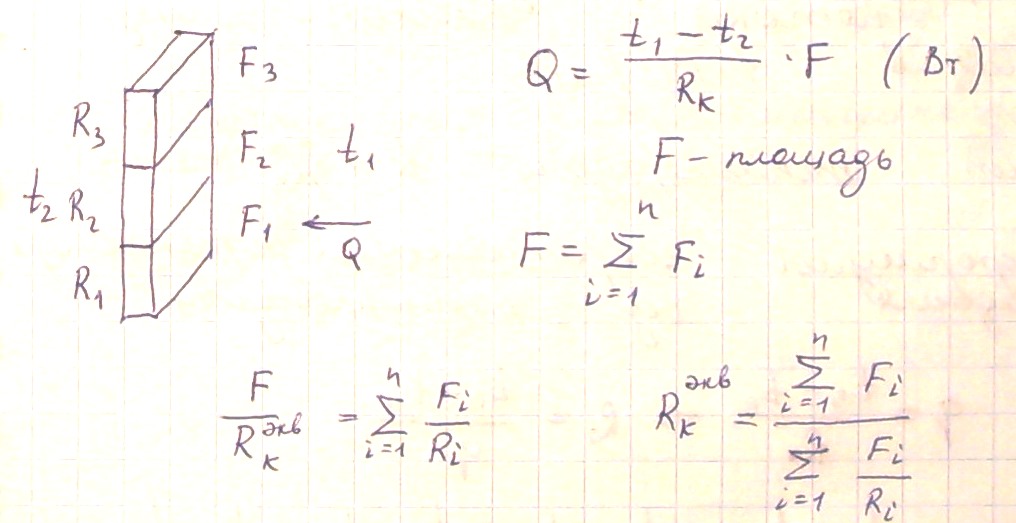 F₃
R₃
F₂
t₁
t₂ R₂
F₁
Q
R₁
Q = (t₁ − t₂)/Rₖ · F (Вт)
F – площадь
F = ∑ᵢ₌₁ⁿ Fᵢ
F/Rₖᵉᵏᵛ = ∑ᵢ₌₁ⁿ Fᵢ/Rᵢ
Rₖ^экв = ∑ᵢ₌₁ⁿ Fᵢ / ∑ᵢ₌₁ⁿ Fᵢ/Rᵢ